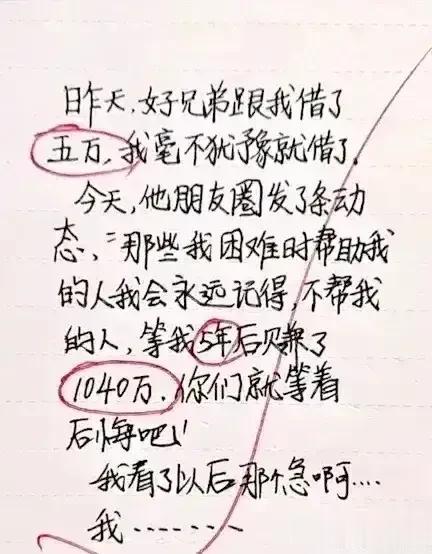 昨天,好兄弟跟我借了
五万,我毫不犹豫就借了,
今天,他朋友圈发了条动
态,“那些我困难时帮助我
的人我会永远记得,不帮我
的人,等我5年后赚了
1040万,你们就等着
后悔吧!”
我看了以后那个急啊....
我.......